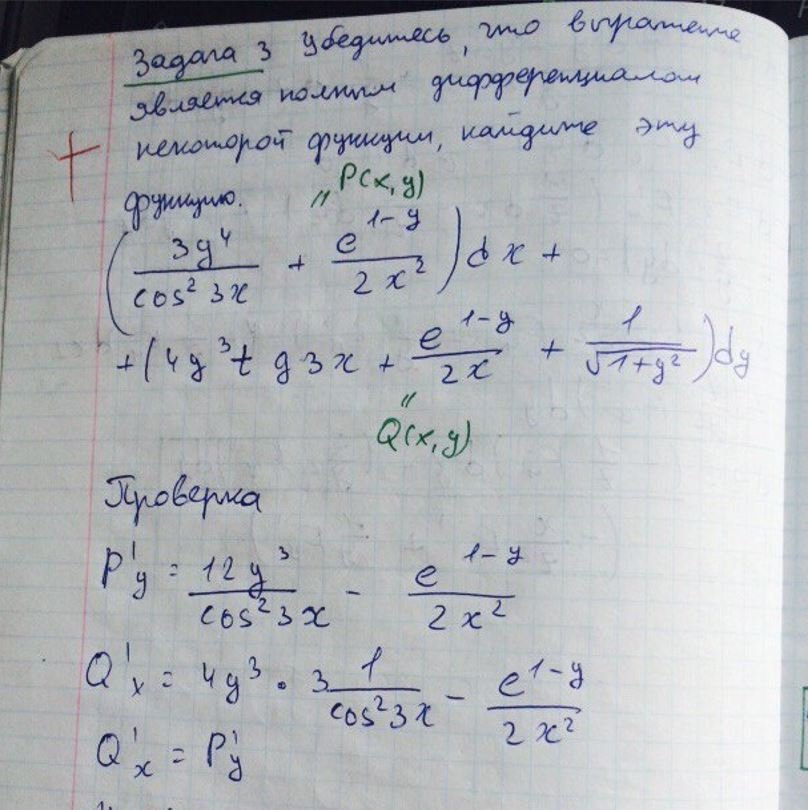 Задача 3 Убедитесь, что выражение
является полным дифференциалом
некоторой функции, найдите эту
функцию.
" P(x,y)
(3y⁴/cos² 3x + e^(1-y)/2x²)dx +
+(4y³tg3x + e^(1-y)/2x + 1/√(1+y²))dy
" Q(x,y)
Проверка
P'y = 12y³/cos²3x - e^(1-y)/2x²
Q'x = 4y³ · 3 1/cos²3x - e^(1-y)/2x²
Q'x = P'y